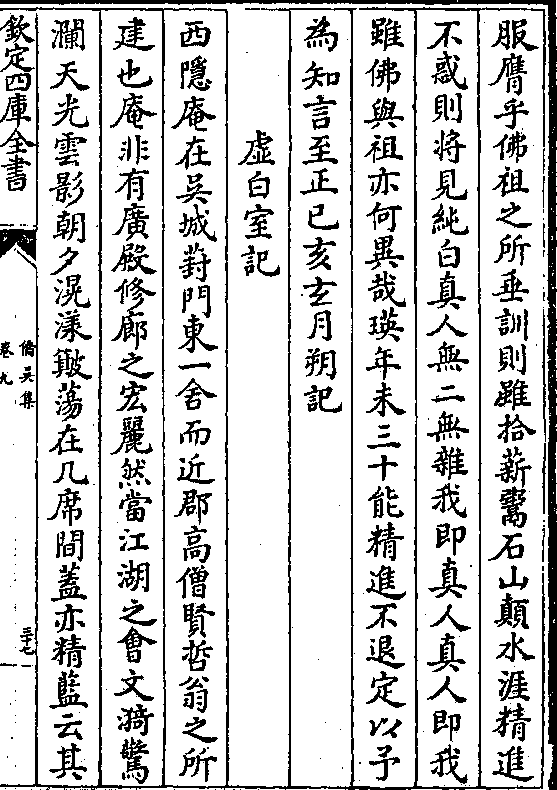 服膺乎佛祖之所垂訓則雖拾薪鬻石山顛水涯精進
不惑則将見純白真人無二無雜我即真人真人即我
雖佛與祖亦何異哉瑛年未三十能精進不退定以予
為知言至正己亥玄月朔記
虚白室記
西隱庵在吳城葑門東一舍而近郡高僧賢哲翁之所
建也庵非有廣殿修廊之宏麗然當江湖之會文漪驚
瀾天光雲影朝夕滉漾皺蕩在几席間蓋亦精藍云其
欽定四庫全書
僑吳集
卷九
三十七